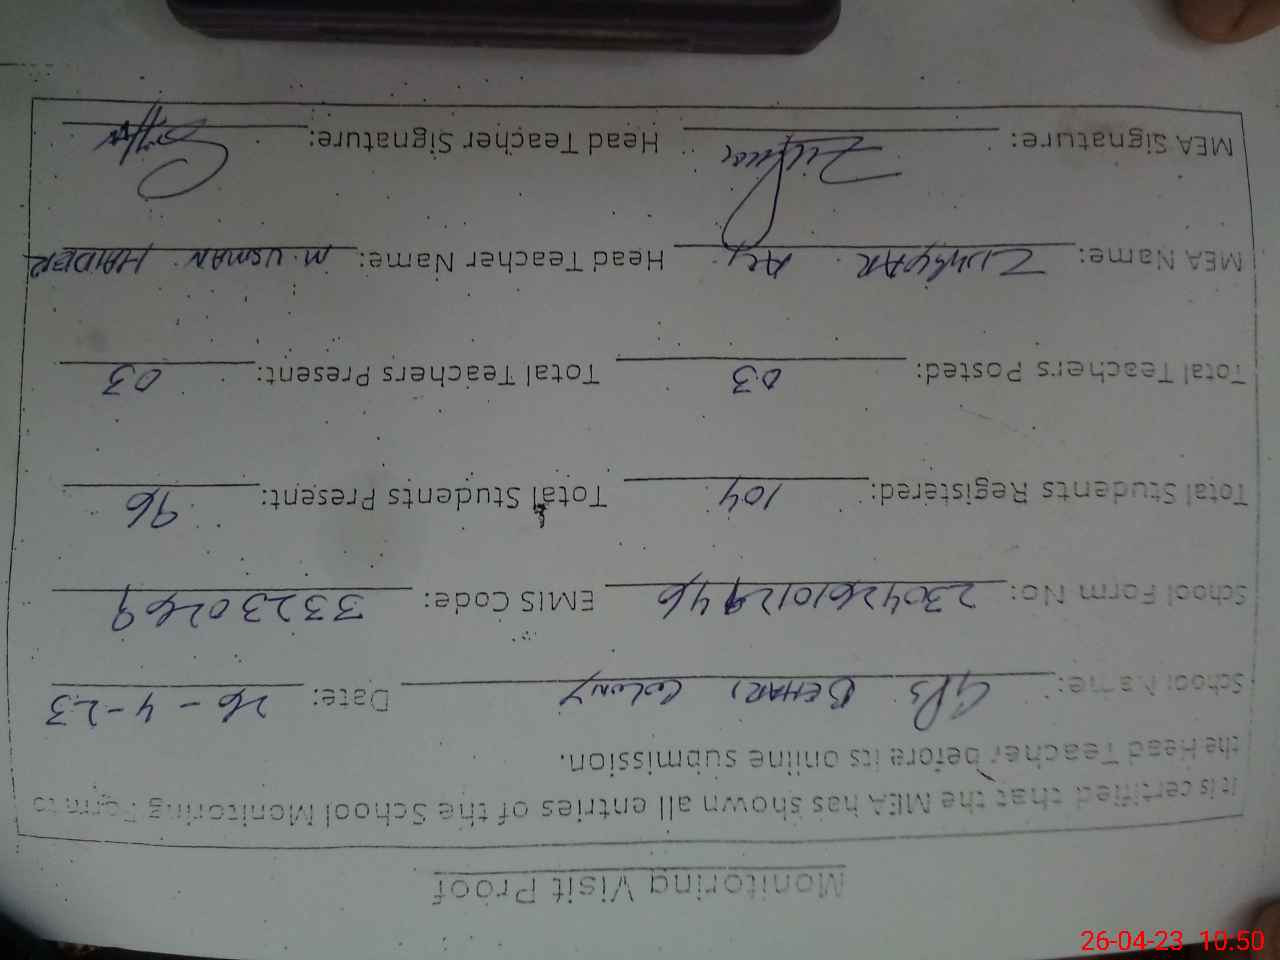 Monitoring Visit Proof
It is certified that the MEA has shown all entries of the School Monitoring Form to
the Head Teacher before its online submission.
School Name: GPS BEHARI COLONY Date: 26-4-23
School Form No: 23042610129946 EMIS Code: 33230269
Total Students Registered: 104 Total Students Present: 96
Total Teachers Posted: 03 Total Teachers Present: 03
MEA Name: ALI Head Teacher Name: M. USMAN HAIDER
MEA Signature: Head Teacher Signature:
26-04-23 10:50